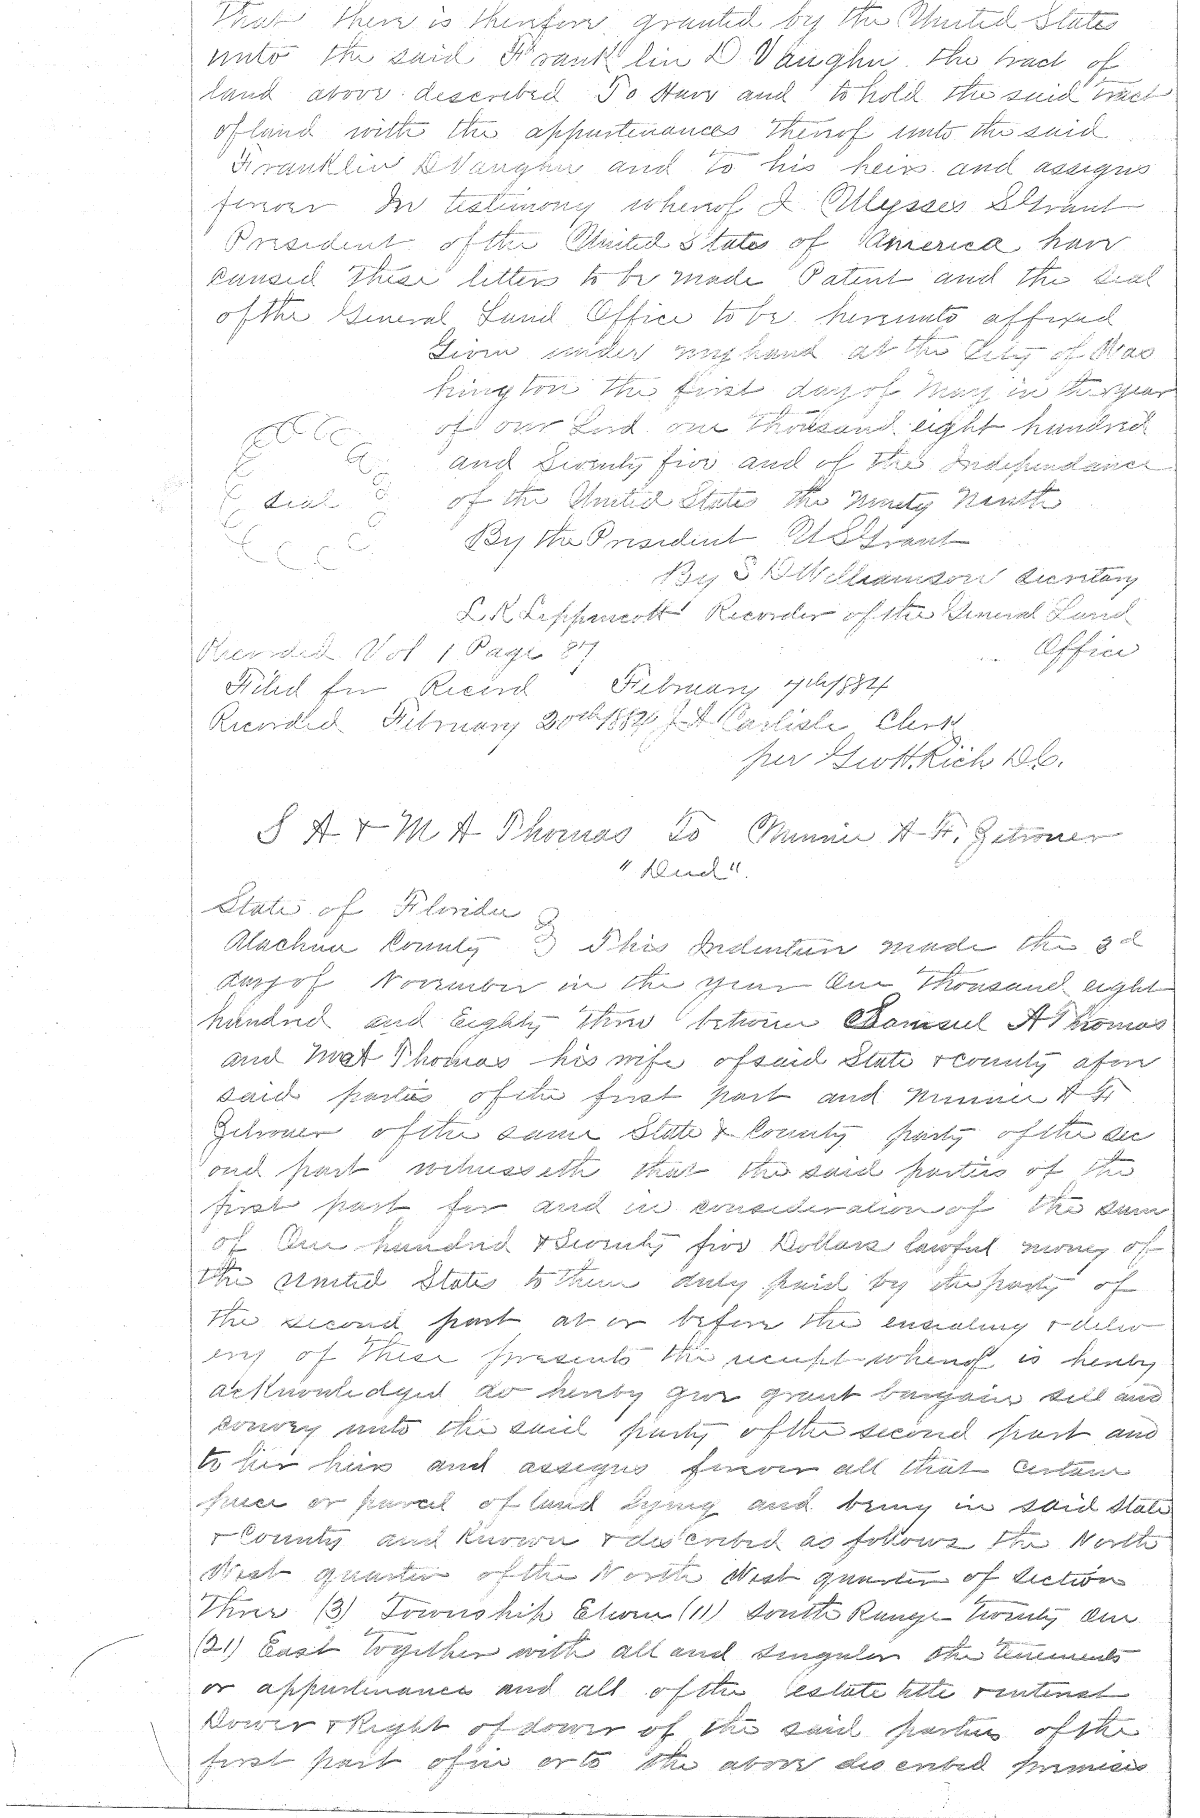 That there is therefore granted by the United States
unto the said Franklin D Vaughn the tract of
land above described To Have and to hold the said tract
of land with the appurtenances thereof unto the said
Franklin D Vaughn and to his heirs and assigns
forever In testimony whereof I Ulysses S Grant
President of the United States of America have
caused these letters to be made Patent and the seal
of the General Land Office to be hereunto affixed
Given under my hand at the City of Was
hington the first day of May in the year
of our Lord one thousand eight hundred
and Seventy five and of the Independance
seal of the United States the Ninety Ninth
By the President U S Grant
By S D Williamson Secretary
L K Lippencott Recorder of the General Land
Office
Recorded Vol 1 Page 87
Filed for Record February 7th 1884
Recorded February 20th 1884 J A Carlisle Clerk
per Geo H. Rich D.C.
S A & M A Thomas To Minnie A F. Zetrouer
"Deed".
State of Florida
Alachua County This Indenture made the 3d
day of November in the year One thousand eight
hundred and Eighty three between Samuel A Thomas
and M A Thomas his wife of said State & County afore
said parties of the first part and Minnie A F
Zetrouer of the same State & County party of the sec
ond part witnesseth that the said parties of the
first part for and in consideration of the sum
of One hundred & Seventy five Dollars lawful money of
the United States to them duly paid by the party of
the second part at or before the ensealing & deliv
ery of these presents the receipt whereof is hereby
acknowledged do hereby give grant bargain sell and
convey unto the said party of the second part and
to her heirs and assigns forever all that certain
piece or parcel of land lying and being in said State
& County and known & described as follows the North
West quarter of the North West quarter of section
Three (3) Township Eleven (11) South Range Twenty One
(21) East together with all and singular the tenements
or appurtenances and all of the estate title & interest
Dower & Right of dower of the said parties of the
first part of in or to the above described premises